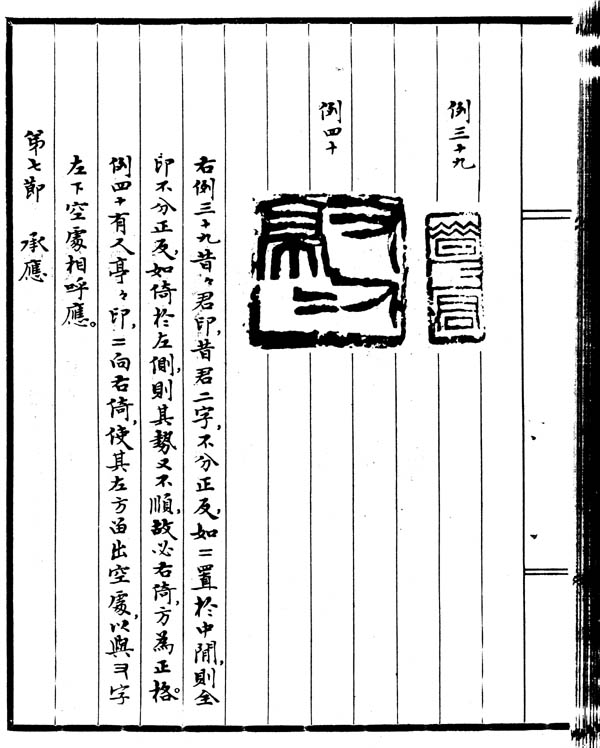 例三十九
例四十
右例三十九昔々君印,昔君二字,不分正反,如二置於中間,則全
印不分正反,如倚於左側,則其勢又不順,故必右倚,方為正格。
例四十有又亭々印,二向右倚,使其左方留出空處,以與字
左下空處相呼應。
第七節 承應